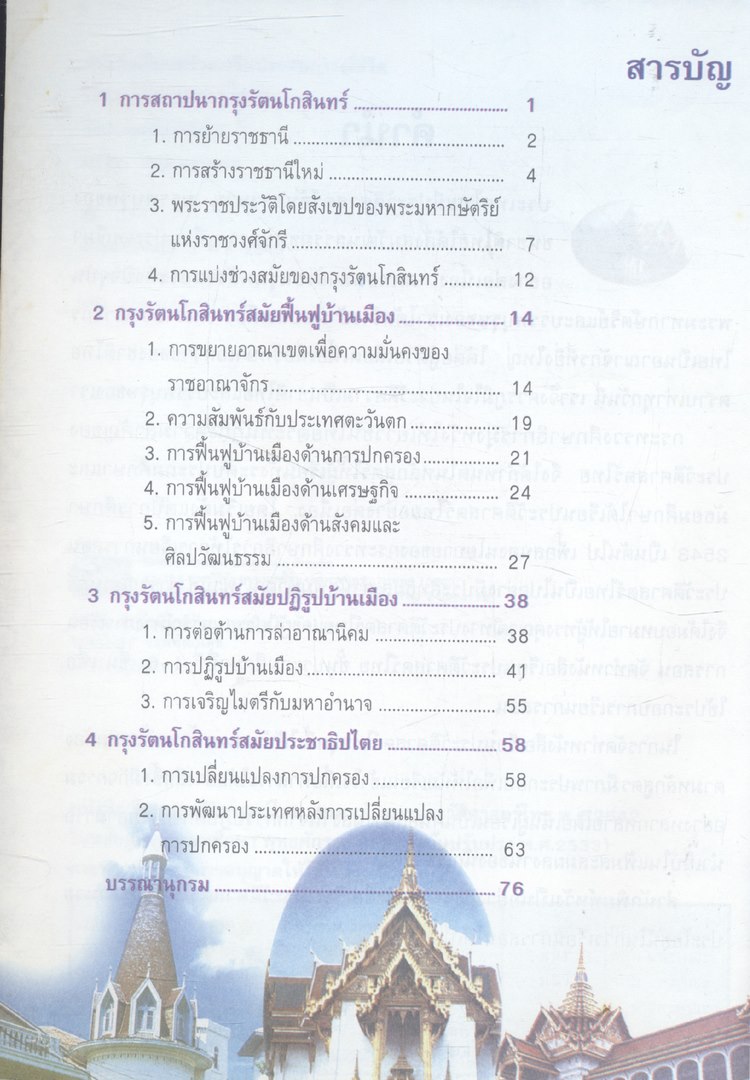 สารบัญ
1 การสถาปนากรุงรัตนโกสินทร์ ............................ 1
1. การย้ายราชธานี ............................ 2
2. การสร้างราชธานีใหม่ ............................ 4
3. พระราชประวัติโดยสังเขปของพระมหากษัตริย์
แห่งราชวงศ์จักรี ............................ 7
4. การแบ่งช่วงสมัยของกรุงรัตนโกสินทร์ ............ 12
2 กรุงรัตนโกสินทร์สมัยฟื้นฟูบ้านเมือง .................... 14
1. การขยายอาณาเขตเพื่อความมั่นคงของ
ราชอาณาจักร ............................ 14
2. ความสัมพันธ์กับประเทศตะวันตก .................... 19
3. การฟื้นฟูบ้านเมืองด้านการปกครอง ................ 21
4. การฟื้นฟูบ้านเมืองด้านเศรษฐกิจ .................... 24
5. การฟื้นฟูบ้านเมืองด้านสังคมและ
ศิลปวัฒนธรรม ............................ 27
3 กรุงรัตนโกสินทร์สมัยปฏิรูปบ้านเมือง .................... 38
1. การต่อต้านการล่าอาณานิคม .................... 38
2. การปฏิรูปบ้านเมือง ............................ 41
3. การเจริญไมตรีกับมหาอำนาจ .................... 55
4 กรุงรัตนโกสินทร์สมัยประชาธิปไตย .................... 58
1. การเปลี่ยนแปลงการปกครอง .................... 58
2. การพัฒนาประเทศหลังการเปลี่ยนแปลง
การปกครอง ............................ 63
บรรณานุกรม ............................ 76